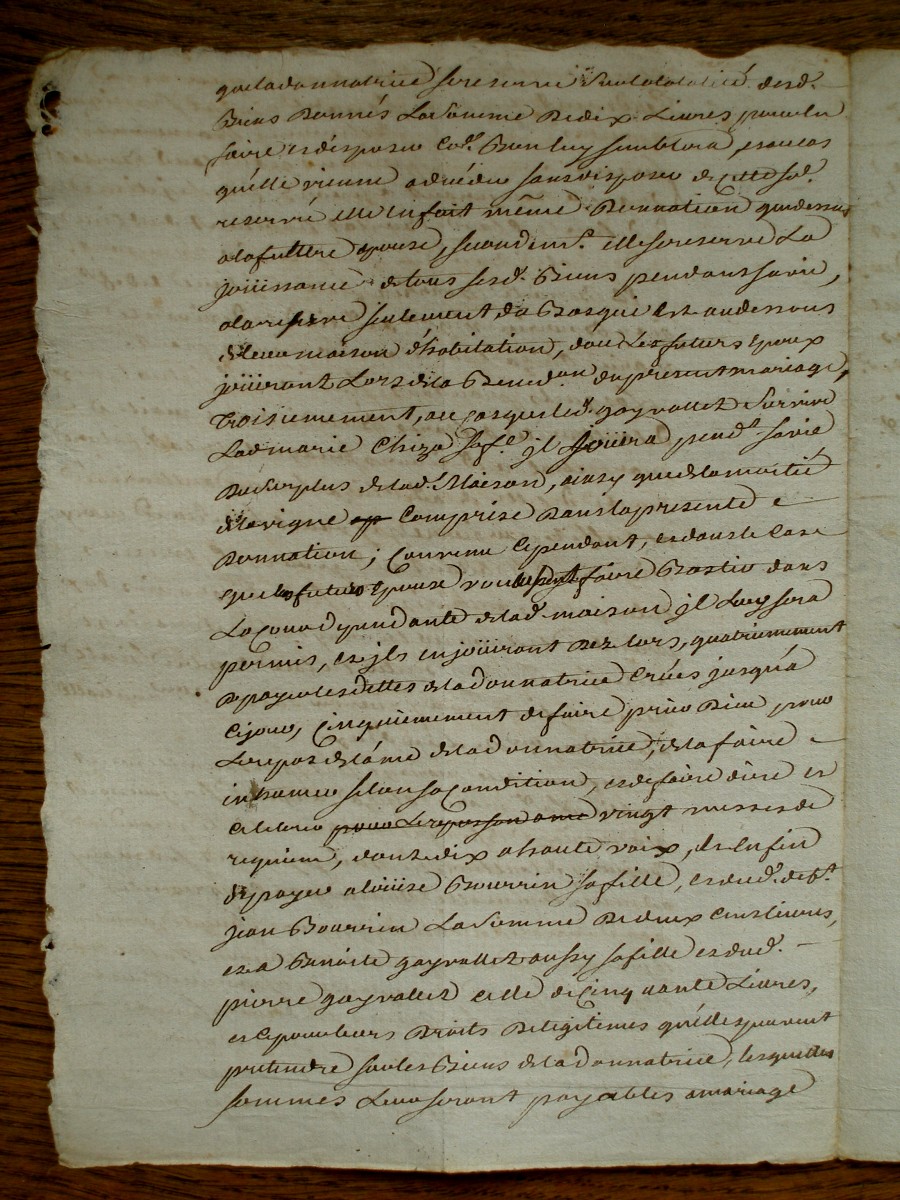 que la donnatrice se reserve sur la totalité desd.
Biens Donnés La Somme De dix Livres pour en
faire et disposer Co.e Bon luy semblera, et au cas
qu'elle vienne a deceder sans disposer de cette so.e
reservé elle en fait même Donnation que dessus
a la future epouse, secondem.t elle se reserve La
joüissance de tous sesd. Biens pendant sa vie,
a la reserve seulement du Bas qui est au dessous
de leur maison d'habitation, dont Les futurs epoux
joüiront Lors de la Bened.on du present mariage,
Troisiemement, au cas que led. gayvallet Survive
Lad marie Chiza sa fe. jl joüira pend.t sa vie
Du Surplus de lad. Maison, ainsy que de la moitié
de la vigne Comprise Dans la presente
Donnation; Convenu Cependant, et dans le Cas
que les futurs Epoux voulussent faire Bastir dans
La Cour dependante de lad. maison jl Leur sera
permis, et jls en joüiront Dez lors, quatriemement
De payer les dettes de la donnatrice Créés jusqu'a
Ce jour, Cinquiemement de faire prier Dieu pour
Le repos de l'ame de la donnatrice, de la faire
inhumer selon sa Condition, et de faire dire et
Celebrer pour Le repos son ame vingt messes de
requiem, dont dix a haute voix, et Enfin
de payer a Loüise Bourrin sa fille, et dud. def.t
jean Bourrin La Somme De deux Cent Livres,
et a Benoite gayvallet aussy sa fille et dud.
pierre gayvallet celle de Cinquante Livres,
et Ce pour leurs Droits De legitimes qu'elles peuvent
pretendre sur les Biens de la donnatrice, lesquelles
sommes Leur seront payables a mariage